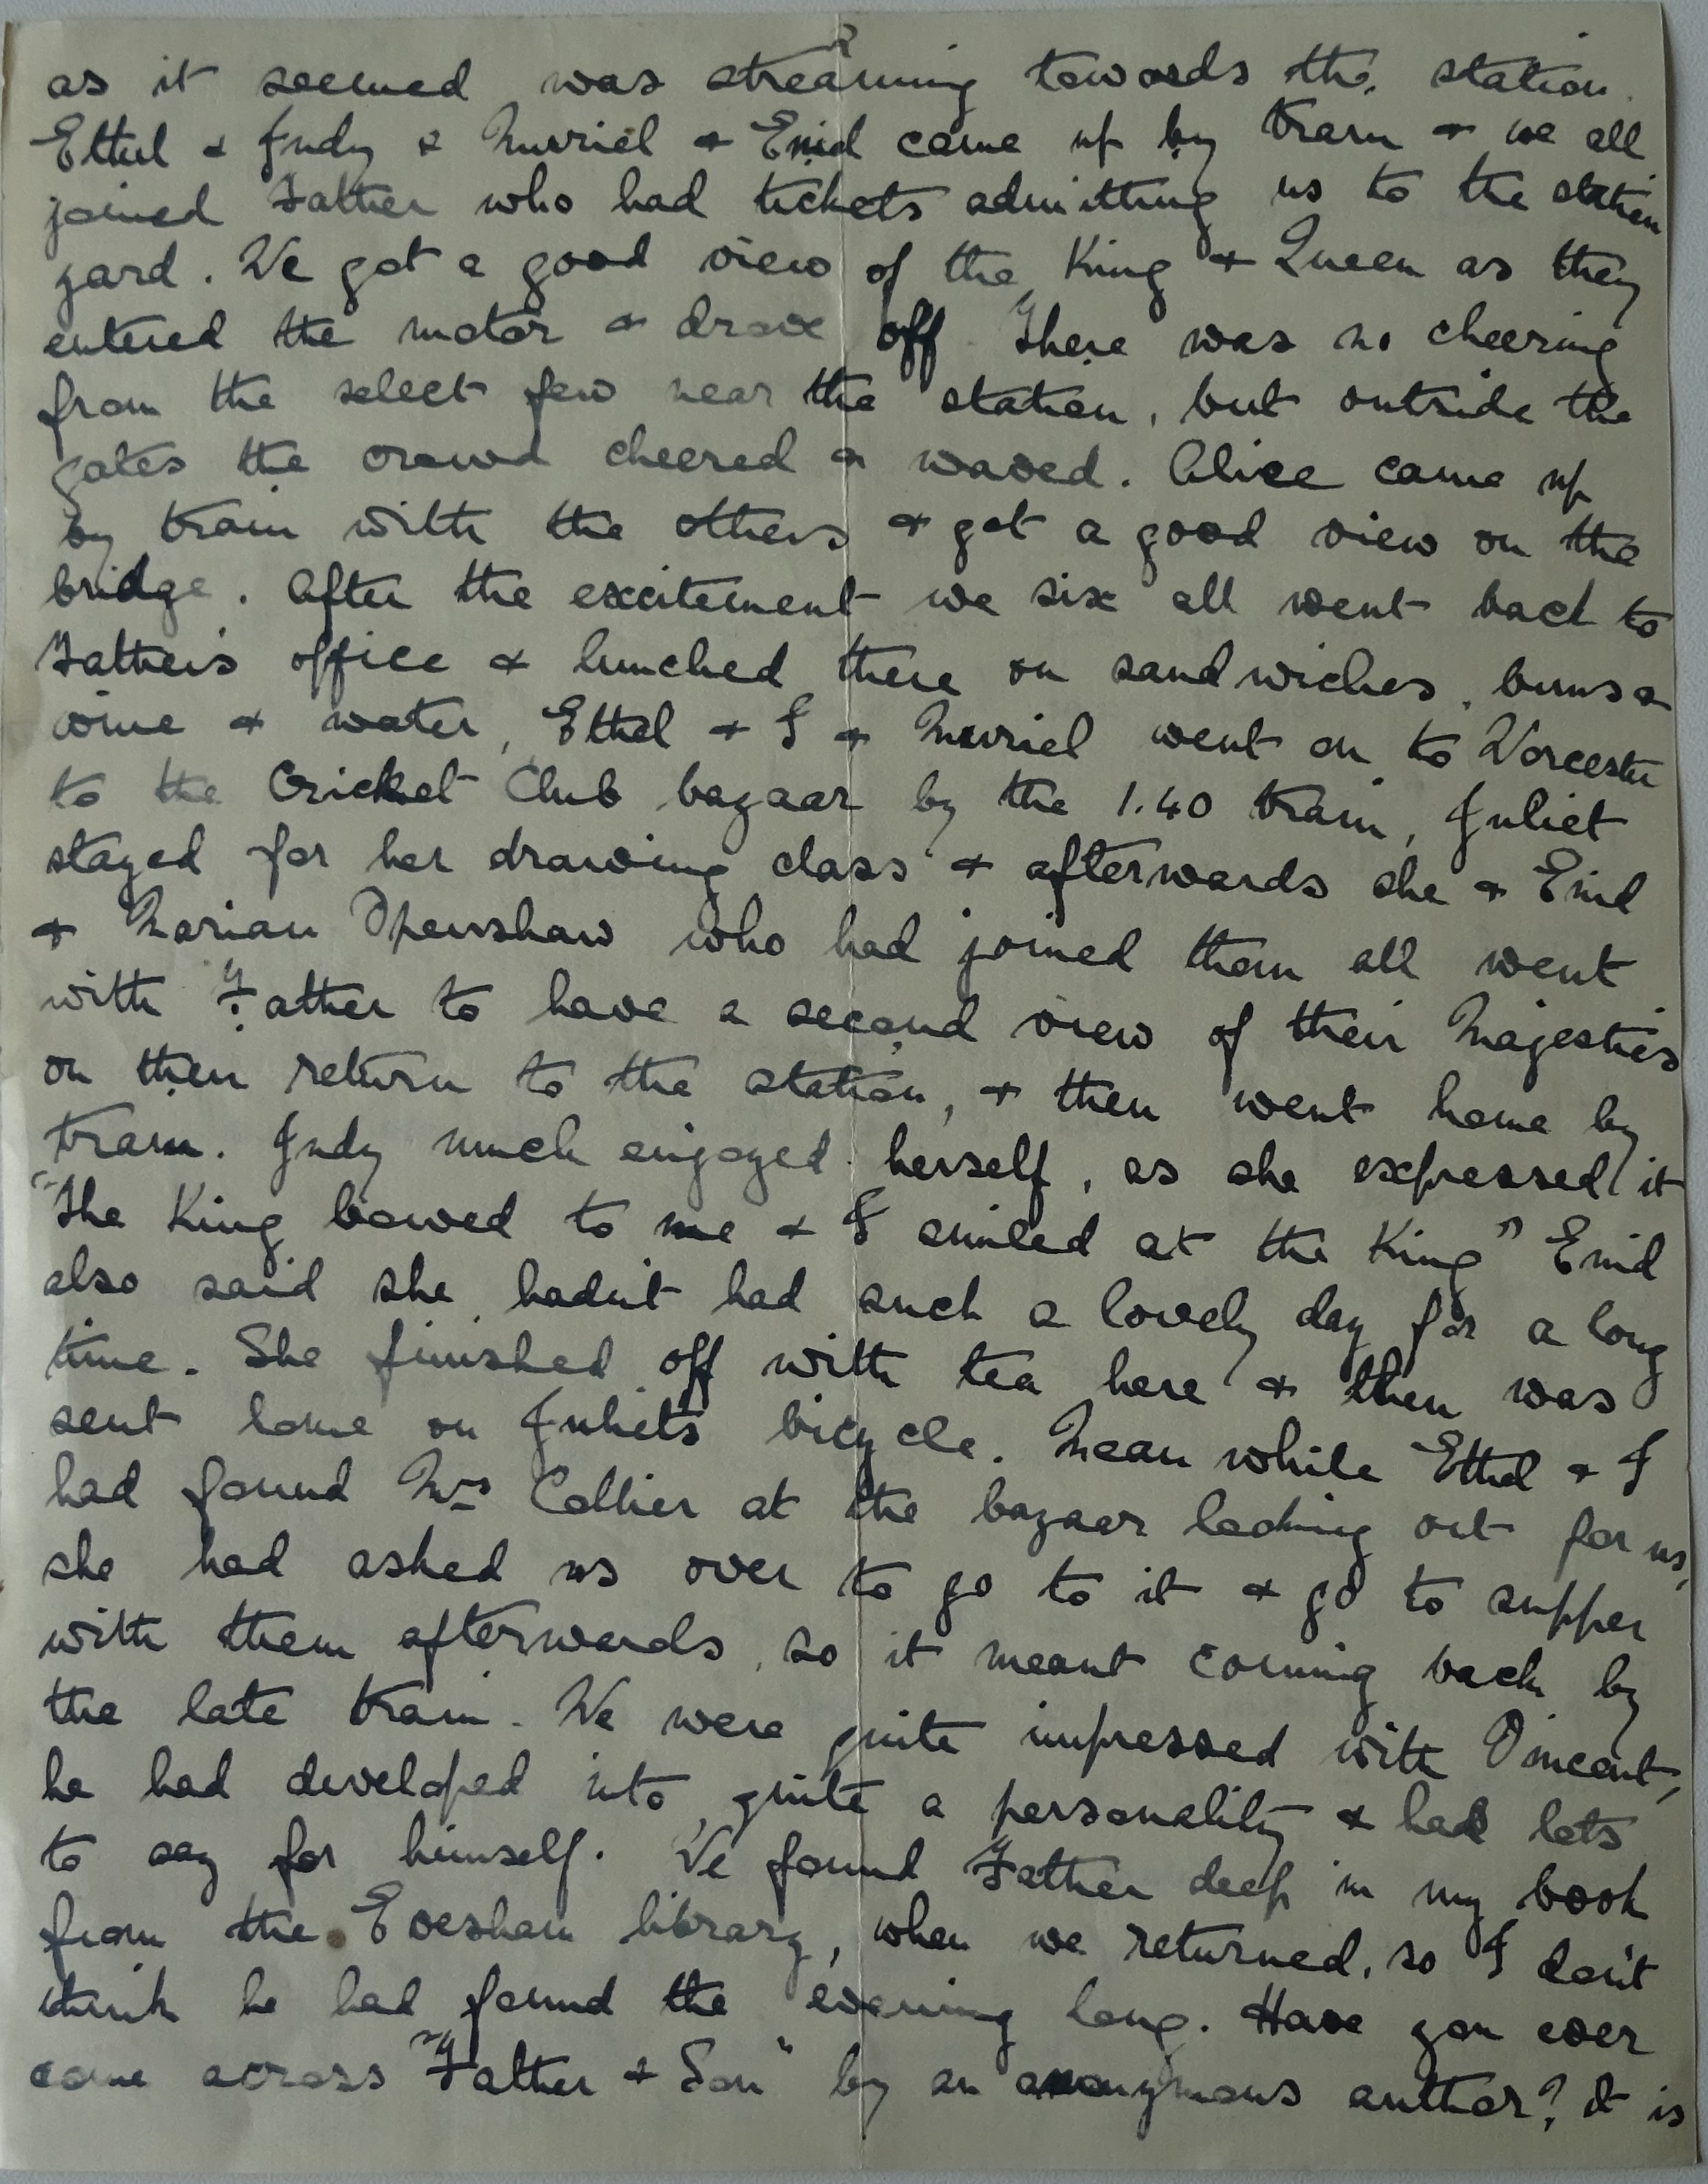 2
as it seemed was streaming towards the station.
Ethel & Judy & Muriel & Enid came up by tram & we all
joined Father who had tickets admitting us to the station
yard. We got a good view of the King & Queen as they
entered the motor & drove off. There was no cheering
from the select few near the station, but outside the
gates the crowd cheered & waved. Alice came up
by train with the others & got a good view on the
bridge. After the excitement we six all went back to
Father's office & lunched there on sandwiches, buns &
wine & water, Ethel & I & Muriel went on to Worcester
to the Cricket Club bazaar by the 1.40 train, Juliet
stayed for her drawing class & afterwards she & Enid
& Marian Openshaw who had joined them all went
with Father to have a second view of their Majesties
on their return to the station, & then went home by
tram. Judy much enjoyed herself, as she expressed it
"The King bowed to me & I smiled at the King" Enid
also said she hadn't had such a lovely day for a long
time. She finished off with tea here & then was
sent home on Juliet's bicycle. Mean while Ethel & I
had found Mrs Collier at the bazaar looking out for us,
she had asked us over to go to it & go to supper
with them afterwards, so it meant coming back by
the late train. We were quite impressed with Vincent,
he had developed into quite a personality & had lots
to say for himself. We found Father deep in my book
from the Evesham library, when we returned, so I don't
think he had found the evening long. Have you ever
come across "Father & Son" by an anonymous author? It is